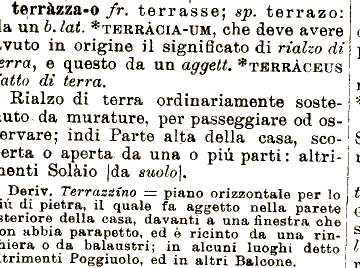 terràzza-o fr. terrasse; sp. terrazo:
da un b. lat. *TERRÀCIA-UM, che deve avere
avuto in origine il significato di rialzo di
terra, e questo da un aggett. *TERRÀCEUS
fatto di terra.
Rialzo di terra ordinariamente soste-
nuto da murature, per passeggiare od os-
servare; indi Parte alta della casa, sco-
perta o aperta da una o più parti: altri-
menti Solàio |da suolo|.
Deriv. Terrazzino = piano orizzontale per lo
più di pietra, il quale fa aggetto nella parete
esteriore della casa, davanti a una finestra che
non abbia parapetto, ed è ricinto da una rin-
ghiera o da balaustri; in alcuni luoghi detto
altrimenti Poggiuolo, ed in altri Balcone.